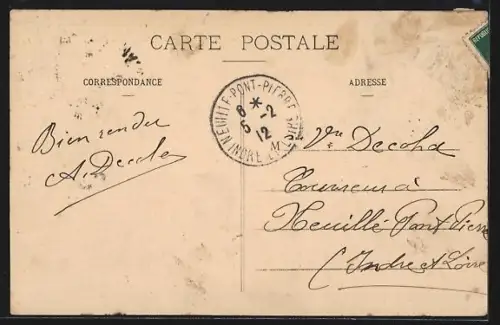 CARTE POSTALE
CORRESPONDANCE
ADRESSE
NEUILLÉ-PONT-PIERRE
6 *
5 -2
12
INDRE ET LOIRE
Bien rendu
A. Decoh
Vve Decoha
à
Neuillé Pont Pierre
(Indre et Loire